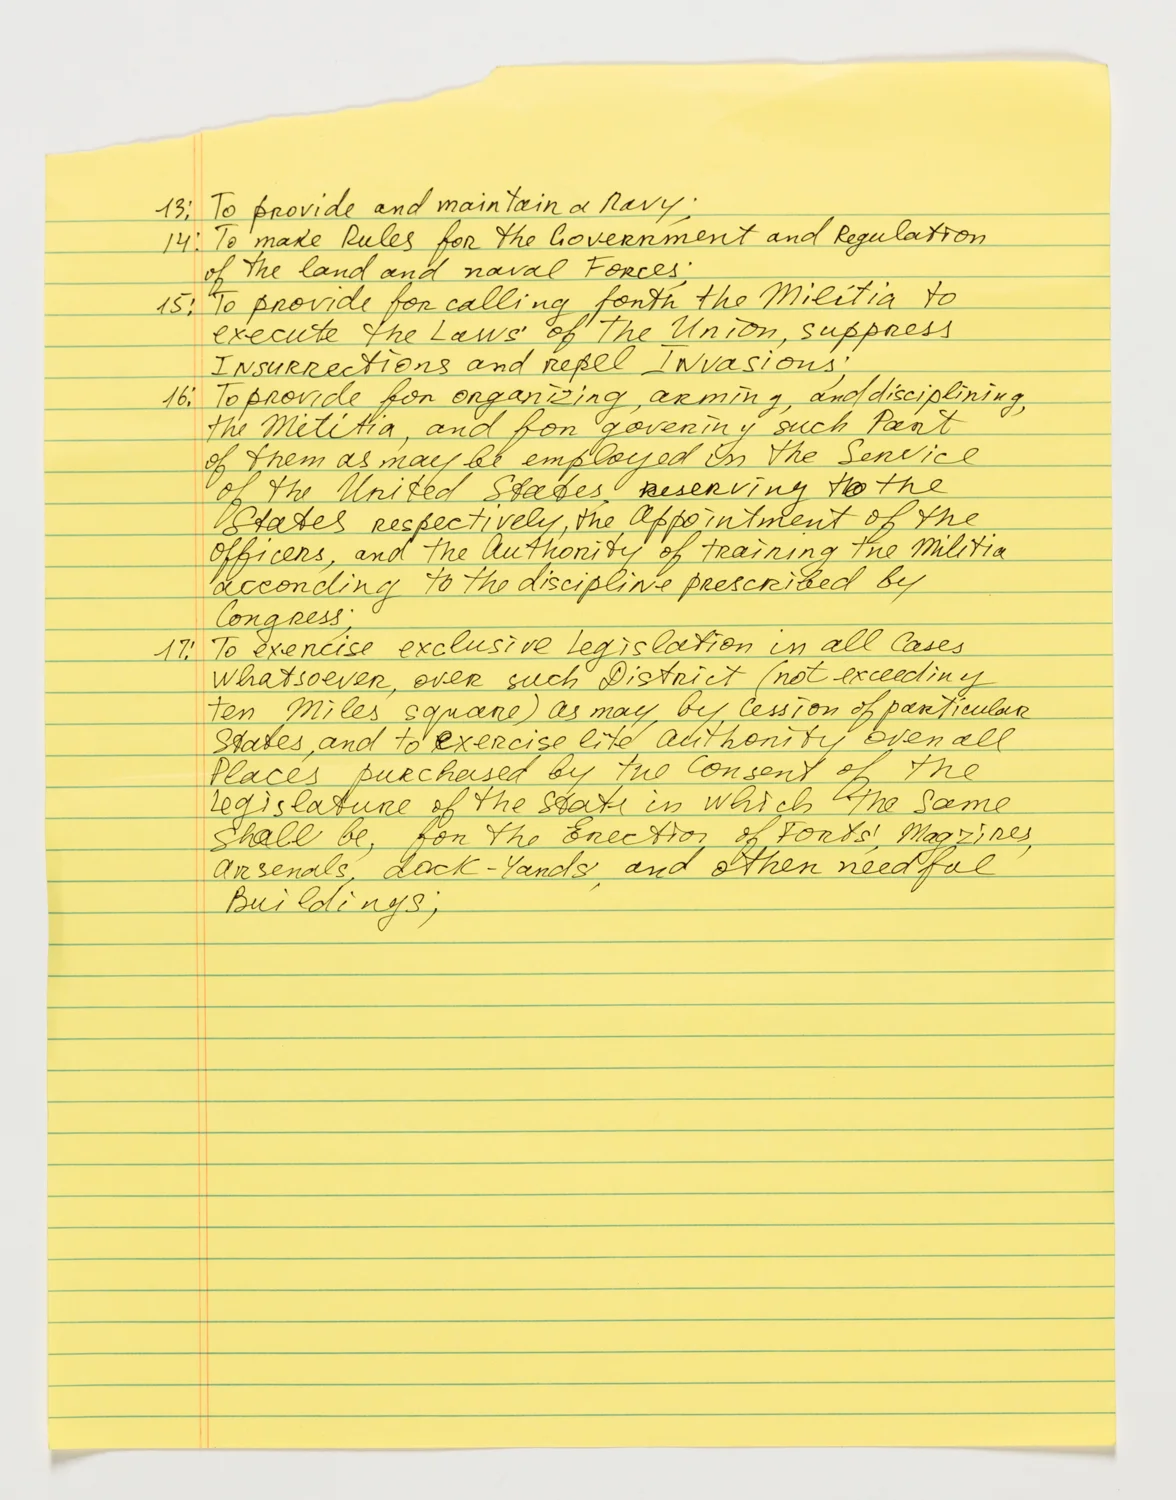 13: To provide and maintain a Navy;
14: To make Rules for the Government and Regulation
of the land and naval Forces;
15: To provide for calling forth the Militia to
execute the Laws of the Union, suppress
Insurrections and repel Invasions;
16: To provide for organizing, arming, and disciplining,
the Militia, and for govering such Part
of them as may be employed in the Service
of the United States, reserving to the
States respectively, the Appointment of the
Officers, and the Authority of training the Militia
according to the discipline prescribed by
Congress;
17: To exercise exclusive Legislation in all Cases
whatsoever, over such District (not exceeding
ten Miles square) as may, by Cession of particular
States, and to exercise like Authority over all
Places purchased by the Consent of the
Legislature of the State in which the Same
shall be, for the Erection of Forts, Magzines,
arsenals, dock-Yards, and other needful
Buildings;